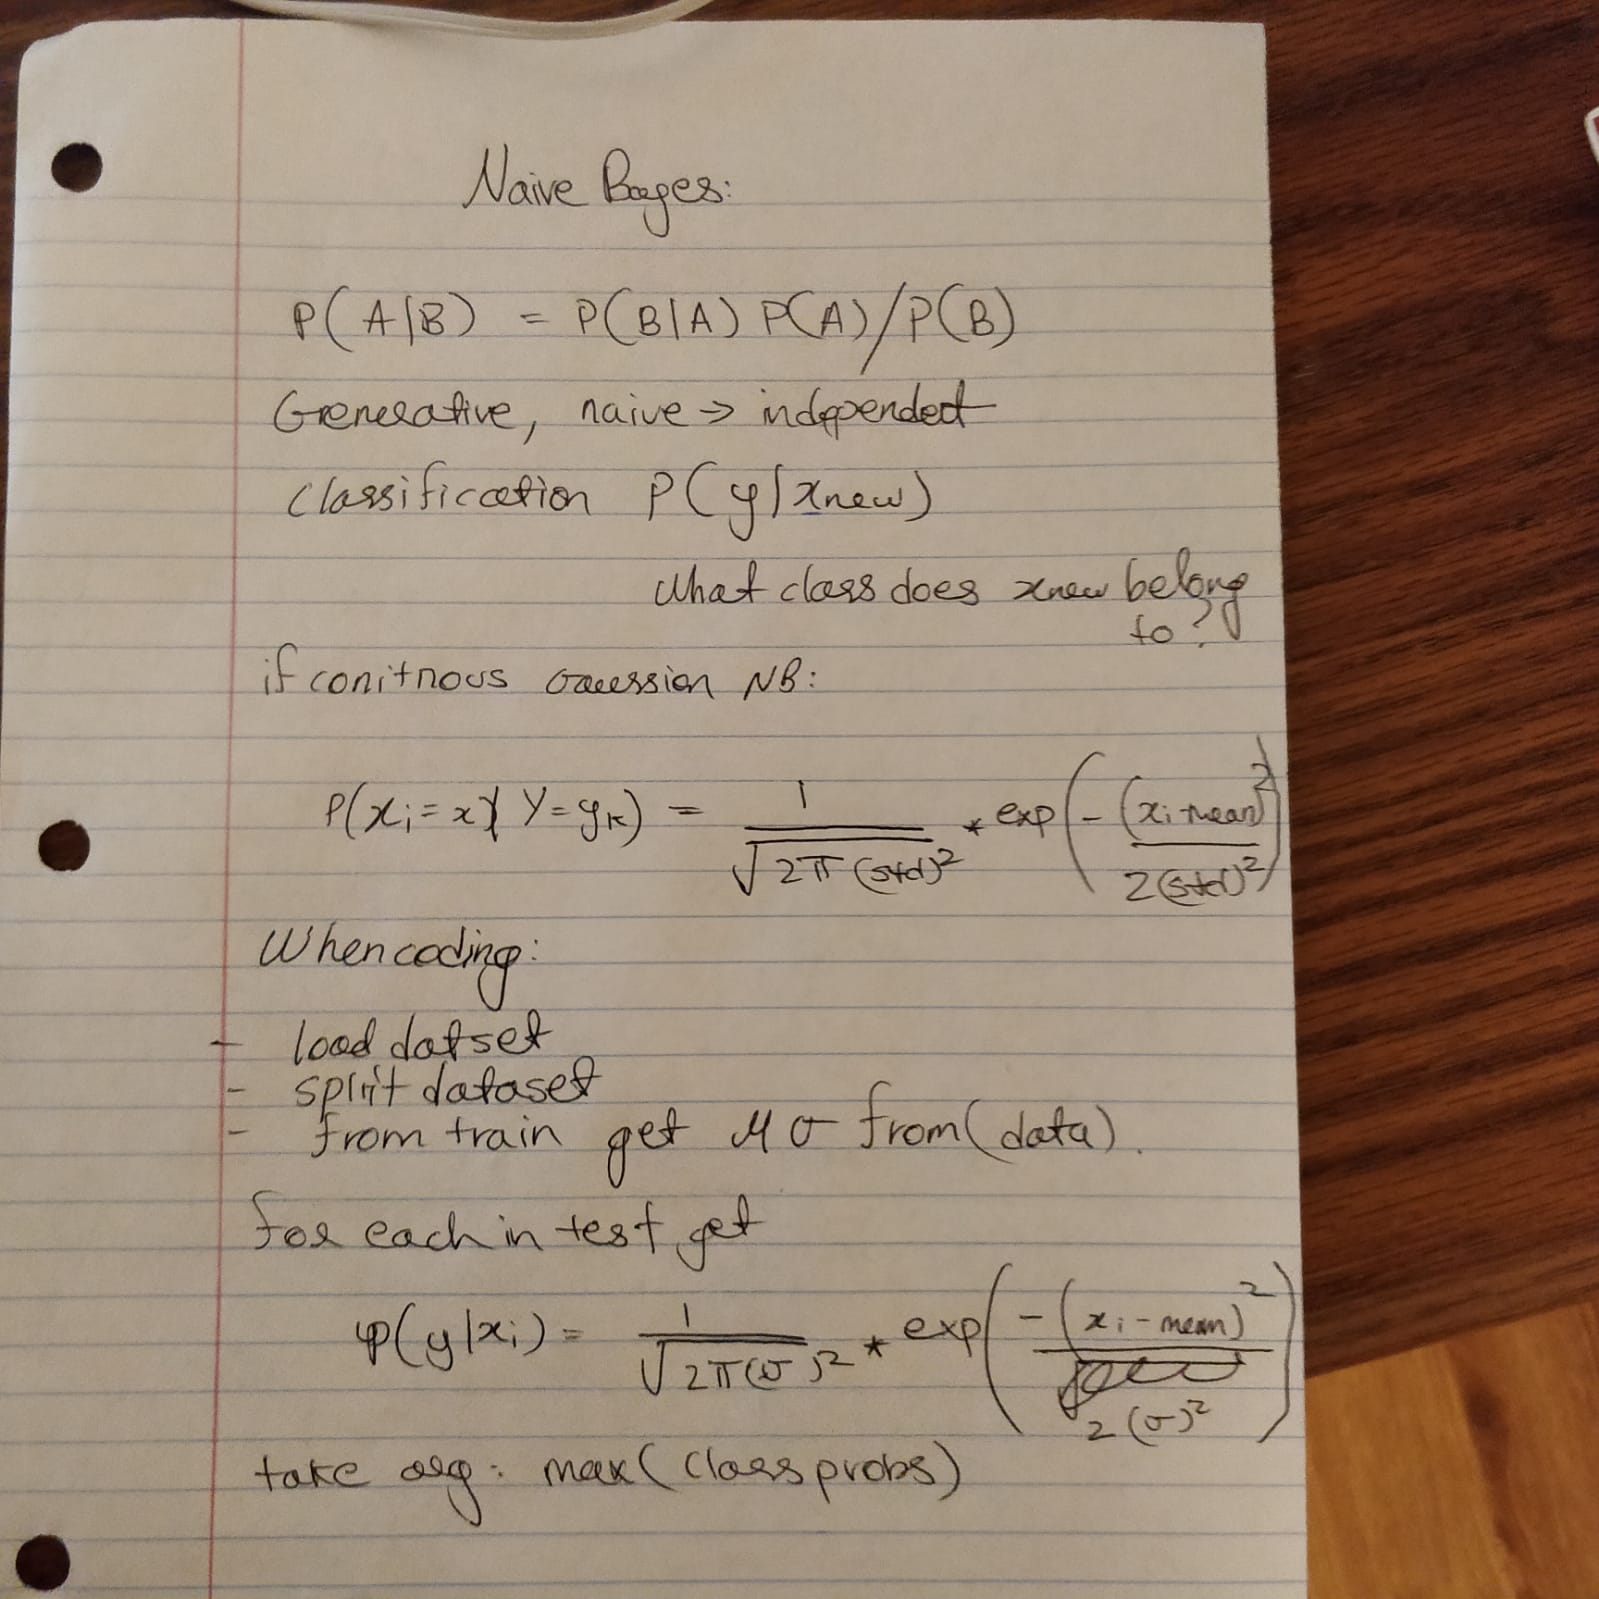 Naive Bayes:
P(A|B) = P(B|A) P(A)/P(B)
Generative, naive → independent
classification P(y|xnew)
What class does xnew belong
to?
if conitnous Gaussian NB:
P(xi = x | Y = yk) = 1/√2π(std)² * exp(-(xi-mean)²/2(std)²)
When coding:
- load datset
- split dataset
- from train get μ σ from (data).
for each in test get
p(y|xi) = 1/√2π(σ)² * exp(-(xi-mean)²/2(σ)²)
take arg: max(class probs)